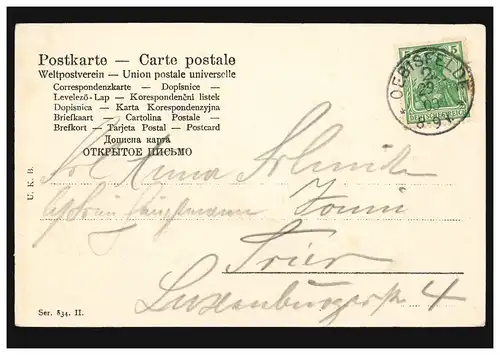 Postkarte — Carte postale
Weltpostverein — Union postale universelle
Correspondenzkarte — Dopisnice —
Levelező-Lap — Korespondenční listek
Dopisnica — Karta Korespondenzyjna
Briefkaart — Cartolina Postale —
Brefkort — Tarjeta Postal — Postcard
Дописна карта
ОТКРЫТОЕ ПИСЬМО
5 5
OEBISFELDE
Frl. Anna
Trier
Luxemburgerstr 4
U. K. B.
Ser. 834. II.